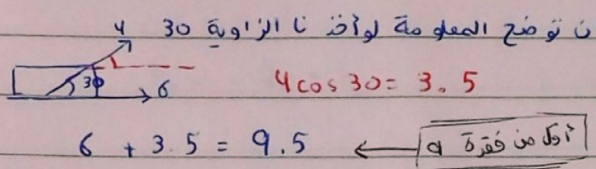 ن توضح المعلومة لو أخذنا الزاوية 30
4
30
6
4 cos 30 = 3.5
6 + 3.5 = 9.5 ← أول من فقرة a